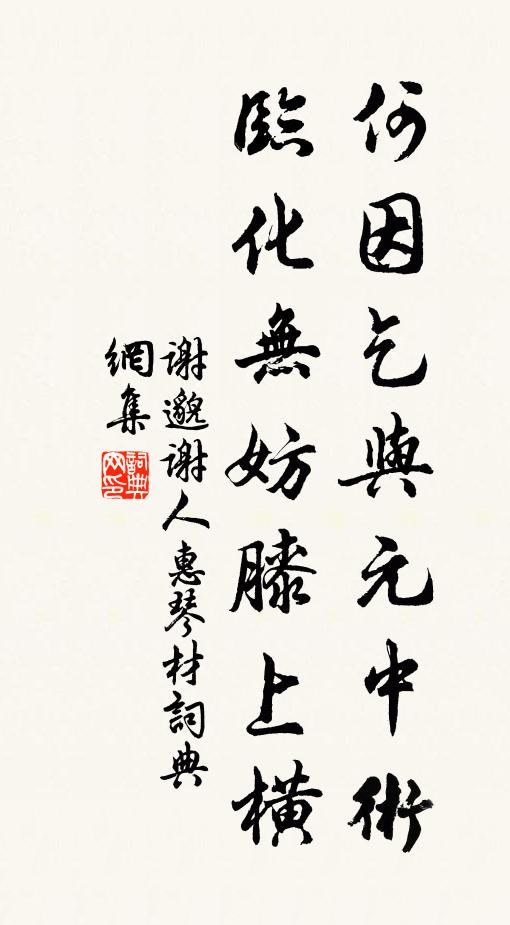 何因乞與元中術
臨化無妨膝上橫
謝邈謝人惠琴材詞典
網集
詞典
网印